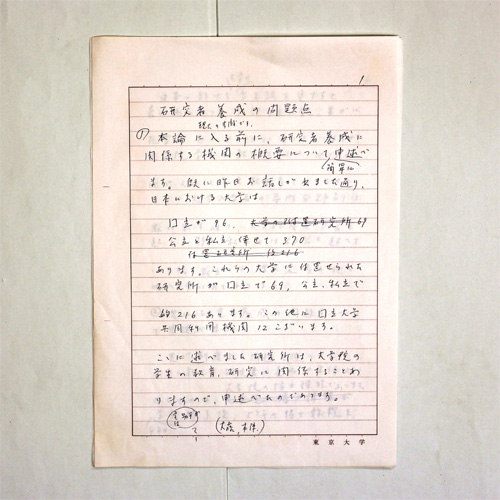 1
研究者養成の問題点
本論に入る前に、研究者養成に
関係する機関の概要について申述べ
簡単に
ます。既に昨日お話しが出ました通り、
日本における大学は
国立が96、大学の附置研究所69
公立と私立併せて370
附置研究所 約216
あります。これらの大学に附置せられた
研究所が国立で69、公立、私立で
約216あります。この他に国立大学
共同利用機関12ございます。
ここに述べました研究所は、大学院の
学生の教育、研究に関係することもあ
りますので、申述べたのであります。
東京大学